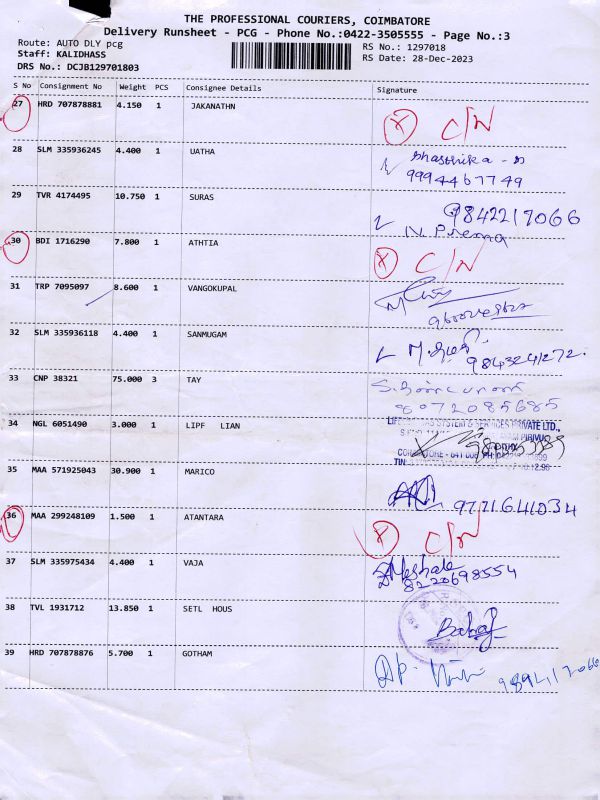 THE PROFESSIONAL COURIERS, COIMBATORE
Delivery Runsheet - PCG - Phone No.:0422-3505555 - Page No.:3
Route: AUTO DLY pcg
RS No.: 1297018
Staff: KALIDHASS
RS Date: 28-Dec-2023
DRS No.: DCJB129701803
S No Consignment No Weight PCS Consignee Details Signature
27 HRD 707878881 4.150 1 JAKANATHN
X C/N
28 SLM 335936245 4.400 1 UATHA
9994467749
29 TVR 4174495 10.750 1 SURAS
9842217066
N. Prema
30 BDI 1716290 7.800 1 ATHTIA
X C/N
31 TRP 7095097 8.600 1 VANGOKUPAL
32 SLM 335936118 4.400 1 SANMUGAM
9843241272.
33 CNP 38321 75.000 3 TAY
8072085685
34 NGL 6051490 3.000 1 LIPF LIAN
SYSTEM & SERVICES PRIVATE LTD.,
35 MAA 571925043 30.900 1 MARICO
9771641034
36 MAA 299248109 1.500 1 ATANTARA
X C/N
37 SLM 335975434 4.400 1 VAJA
8220698554
38 TVL 1931712 13.850 1 SETL HOUS
39 HRD 707878876 5.700 1 GOTHAM